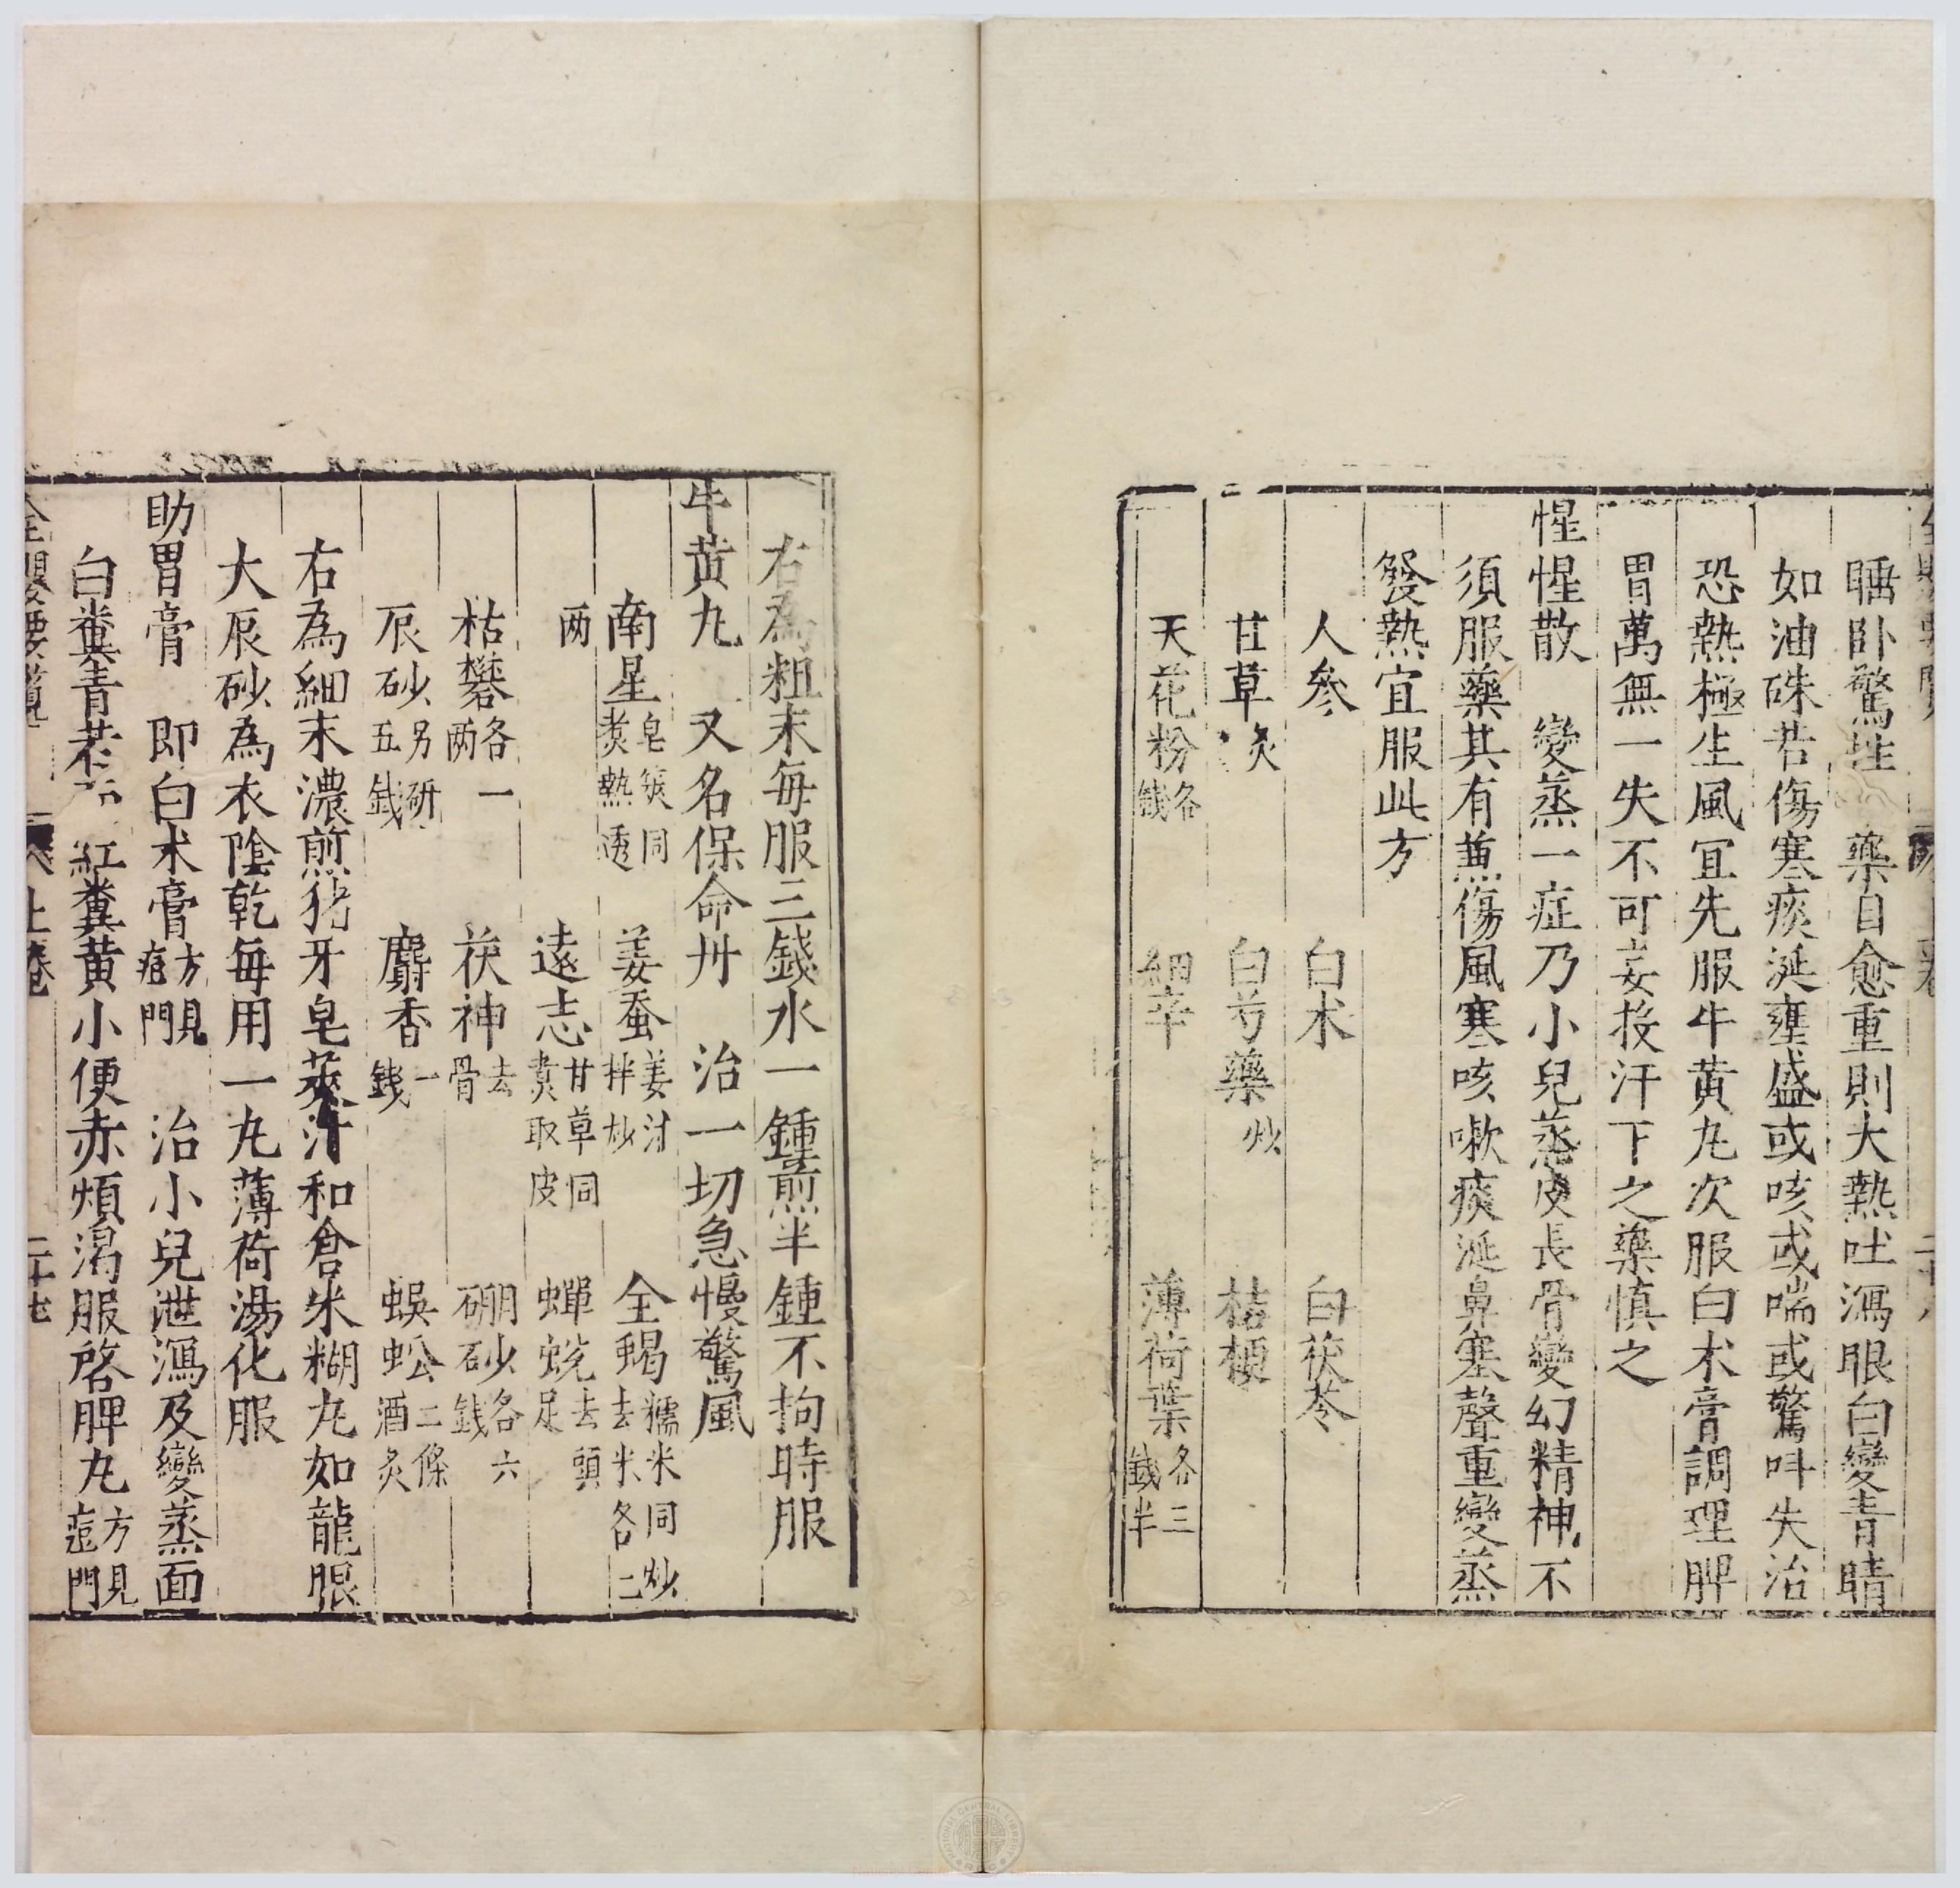 睡卧驚 藥自愈重則大熱吐瀉眼白變青睛
如油硃若傷寒痰涎壅盛或咳或喘或驚呌失治
恐熱極生風冝先服牛黄九次服白术膏調理脾
胃萬無一失不可妄投汗下之藥慎之
惺惺散 變蒸一症乃小兒蒸皮長骨變幻精神不
須服藥其有蒹傷風寒咳嗽痰涎鼻塞聲重變蒸
發熱宜服此方
人參 白术 白茯苓
甘草炙 白芍藥炒 桔梗
天花粉各錢 細辛 薄荷葉各三錢半
右為粗末每服三錢水一鍾煎半鍾不拘時服
牛黄九 又名保命丹 治一切急慢驚風
南星皂筴同煑熱透 姜蚕姜汁拌炒 全蝎糯米同炒去米各二
两 遠志甘草同煑取皮 蟬蛻去頭足
枯礬各一两 茯神去骨 硼砂各六錢
辰砂另研五錢 麝香一錢 蜈蚣二條酒炙
右為細末濃煎猪牙皂莢汁和倉米糊九如龍眼
大辰砂為衣陰乾每用一九薄荷湯化服
助胃膏 即白术膏方見痘門 治小兒泄瀉及變蒸面
白糞青 紅糞黄小便赤煩渴服啓脾九方見痘門
上卷